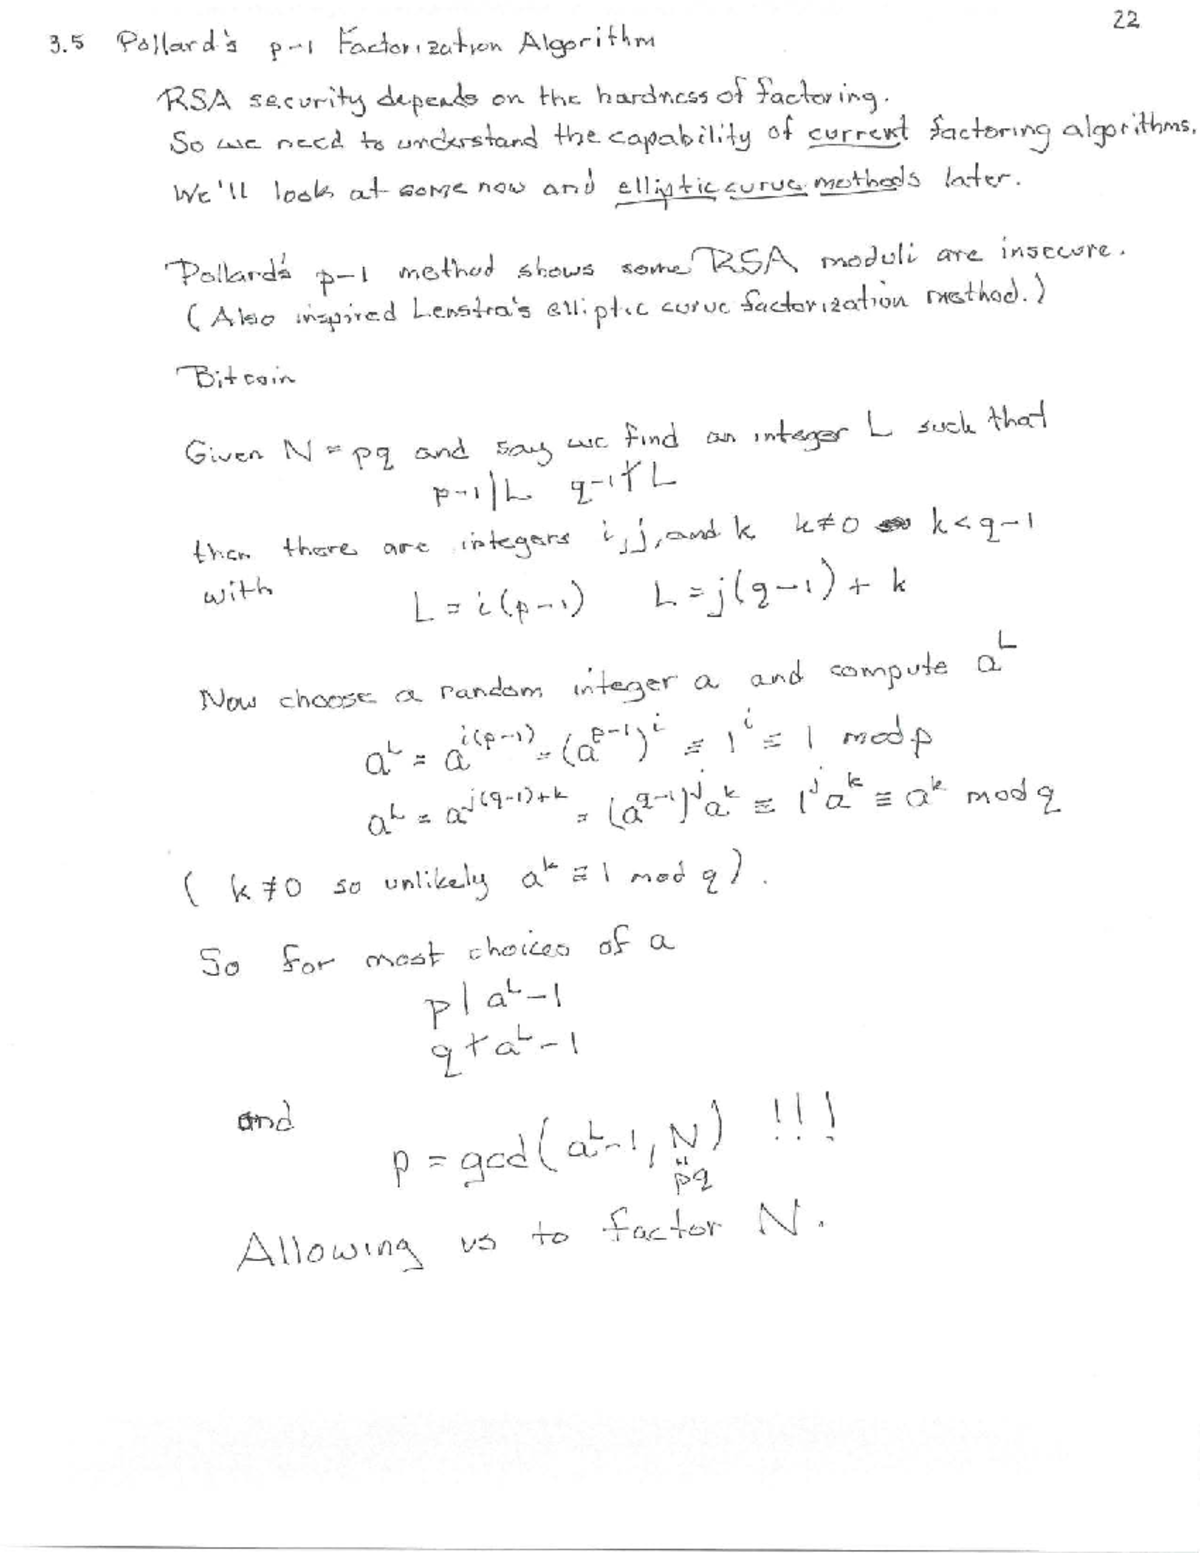 22
3.5 Pollard's p-1 Factorization Algorithm
RSA security depends on the hardness of factoring.
So we need to understand the capability of current factoring algorithms.
We'll look at some now and elliptic curve methods later.
Pollard's p-1 method shows some RSA moduli are insecure.
(Also inspired Lenstra's elliptic curve factorization method.)
Bitcoin
Given N = pq and say we find an integer L such that
p-1 | L q-1 ∤ L
then there are integers i, j, and k k≠0 k<q-1
with
L = i(p-1) L = j(q-1) + k
Now choose a random integer a and compute a^L
a^L = a^{i(p-1)} = (a^{p-1})^i ≡ 1^i ≡ 1 mod p
a^L = a^{j(q-1)+k} = (a^{q-1})^j a^k ≡ 1^j a^k ≡ a^k mod q
( k≠0 so unlikely a^k ≡ 1 mod q ).
So for most choices of a
p | a^L - 1
q ∤ a^L - 1
and
p = gcd(a^L - 1, N) !!!
"
pq
Allowing us to factor N.